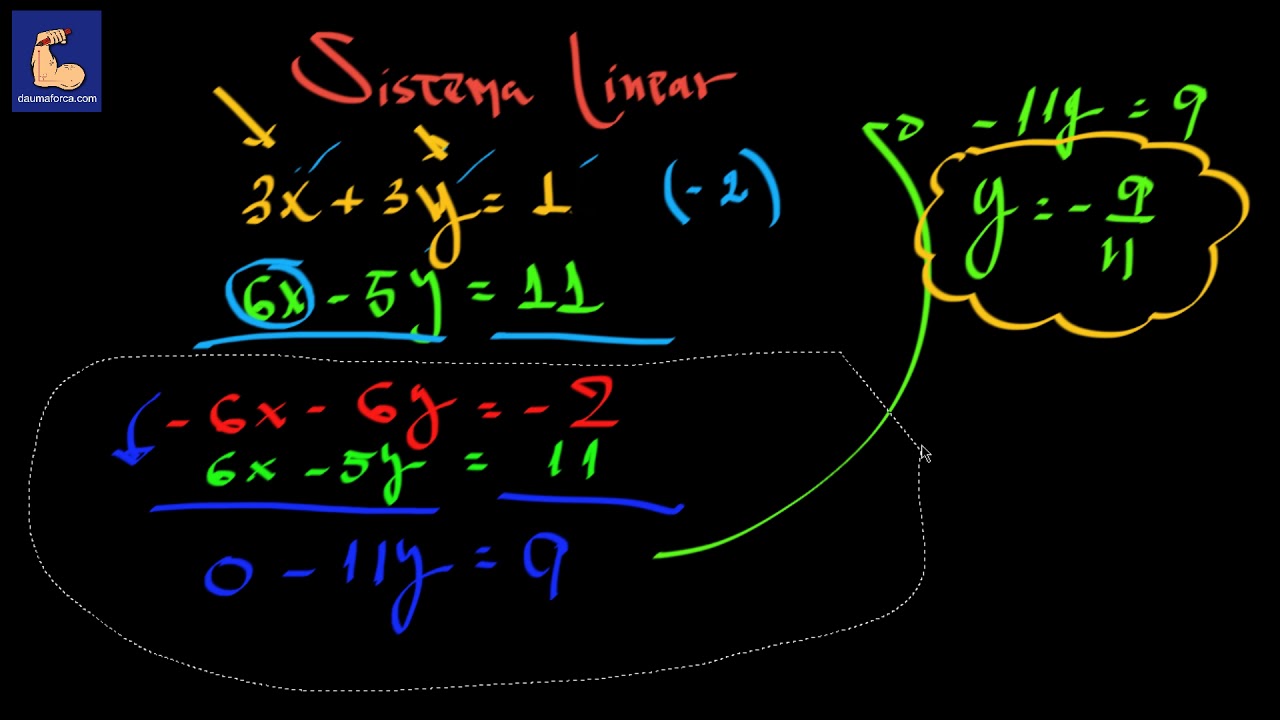 daumaforca.com
Sistema Linear
3x + 3y = 1 (-2)
6x - 5y = 11
-6x - 6y = -2
6x - 5y = 11
0 - 11y = 9
-11y = 9
y = - 9/11